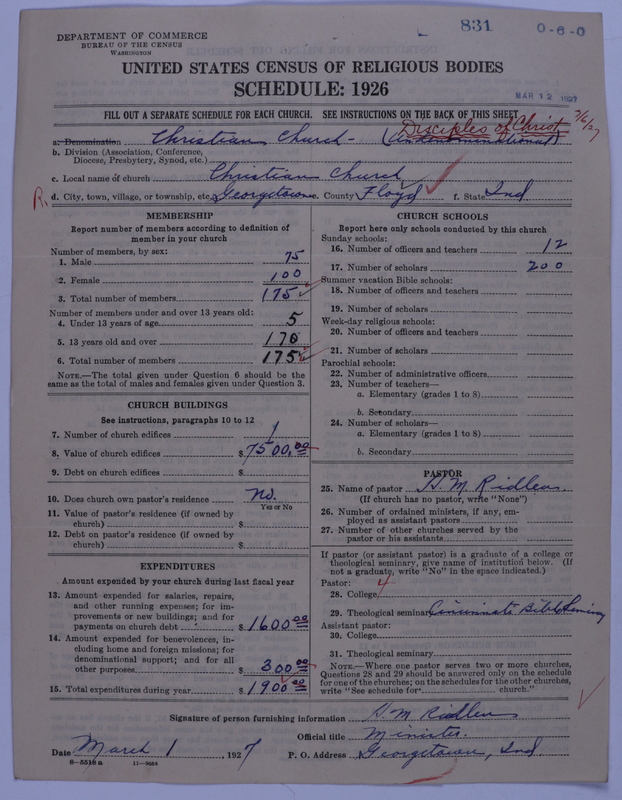 831
0-6-0
DEPARTMENT OF COMMERCE
BUREAU OF THE CENSUS
WASHINGTON
UNITED STATES CENSUS OF RELIGIOUS BODIES
SCHEDULE: 1926
MAR 12 1927
FILL OUT A SEPARATE SCHEDULE FOR EACH CHURCH. SEE INSTRUCTIONS ON THE BACK OF THIS SHEET
Disciples of Christ
a. Denomination Christian Church - (Undenominational)
b. Division (Association, Conference,
Diocese, Presbytery, Synod, etc.)
c. Local name of church Christian Church
R. d. City, town, village, or township, etc. Georgetown e. County Floyd f. State Ind.
MEMBERSHIP
Report number of members according to definition of
member in your church
Number of members, by sex:
1. Male 75
2. Female 100
3. Total number of members 175
Number of members under and over 13 years old:
4. Under 13 years of age 5
5. 13 years old and over 170
6. Total number of members 175
NOTE.—The total given under Question 6 should be
the same as the total of males and females given under Question 3.
CHURCH BUILDINGS
See instructions, paragraphs 10 to 12
7. Number of church edifices 1
8. Value of church edifices $ 7500.00
9. Debt on church edifices $
10. Does church own pastor's residence No.
Yes or No
11. Value of pastor's residence (if owned by
church) $
12. Debt on pastor's residence (if owned by
church) $
EXPENDITURES
Amount expended by your church during last fiscal year
13. Amount expended for salaries, repairs,
and other running expenses; for im-
provements or new buildings; and for
payments on church debt $ 1600.00
14. Amount expended for benevolences, in-
cluding home and foreign missions; for
denominational support; and for all
other purposes $ 300.00
15. Total expenditures during year $ 1900.00
CHURCH SCHOOLS
Report here only schools conducted by this church
Sunday schools:
16. Number of officers and teachers 12
17. Number of scholars 200
Summer vacation Bible schools:
18. Number of officers and teachers
19. Number of scholars
Week-day religious schools:
20. Number of officers and teachers
21. Number of scholars
Parochial schools:
22. Number of administrative officers
23. Number of teachers—
a. Elementary (grades 1 to 8)
b. Secondary
24. Number of scholars—
a. Elementary (grades 1 to 8)
b. Secondary
PASTOR
25. Name of pastor H. M. Ridlen
(If church has no pastor, write "None")
26. Number of ordained ministers, if any, em-
ployed as assistant pastors
27. Number of other churches served by the
pastor or his assistants
If pastor (or assistant pastor) is a graduate of a college or
theological seminary, give name of institution below. (If
not a graduate, write "No" in the space indicated.)
Pastor:
28. College
29. Theological seminary Cincinnati Bible Seminary
Assistant pastor:
30. College
31. Theological seminary
NOTE.—Where one pastor serves two or more churches,
Questions 28 and 29 should be answered only on the schedule
for one of the churches; on the schedules for the other churches,
write "See schedule for church."
Signature of person furnishing information H. M. Ridlen
Official title Minister.
Date March 1, 1927 P. O. Address Georgetown, Ind
8-5518a 11-9684